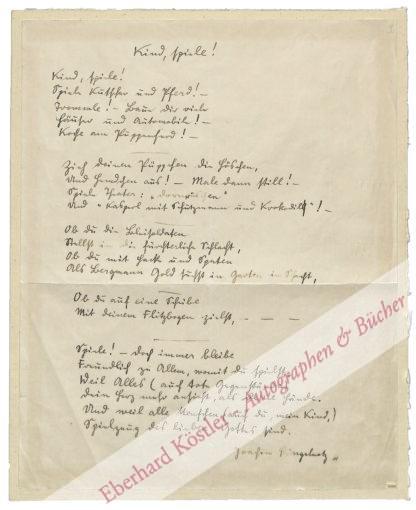 Kind, spiele!
Kind, spiele!
Spiele Kutscher und Pferd! –
Trommle! – Baue dir viele
Häuser und Automobile! –
Koche am Puppenherd! –
Zieh deinen Püppchen die Höschen
Und Hemdchen aus! – Male dann still! –
Spiele Theater: "Dornröschen"
Und "Kasperl mit Schutzmann und Krokodill"! –
Ob du die Bleisoldaten
Stellst in die fürchterliche Schlacht,
Ob du mit Hacke und Spaten
Als Bergmann Gold suchst im Garten im Schacht,
Ob du auf eine Scheibe
Mit deinem Flitzbogen zielst, – – –
Spiele! – Doch immer bleibe
Freundlich zu Allem, womit du spielst.
Weil Alles (auch tote Gegenstände)
Dein Herz mehr ansieht, als deine Hände.
Und weil alle Menschen (auch du, mein Kind,)
Spielzeug des lieben Gottes sind.
Joachim Ringelnatz
Eberhard Köstler Autographen & Bücher